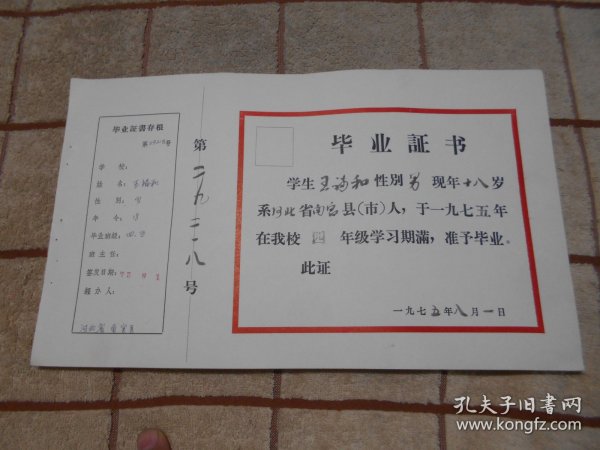 毕业証書存根
第 号
学 校:
姓 名:
性 别: 男
年 令: 18
毕业班级: 四
班主任:
签发日期:
经办人:
河北省南宫县
第二九二一八号
毕业証书
学生王 和性别男现年十八岁
系河北省南宫县(市)人,于一九七五年
在我校四年级学习期满,准予毕业。
此证
一九七五年八月一日
孔夫子旧書网
www.kongfz.com